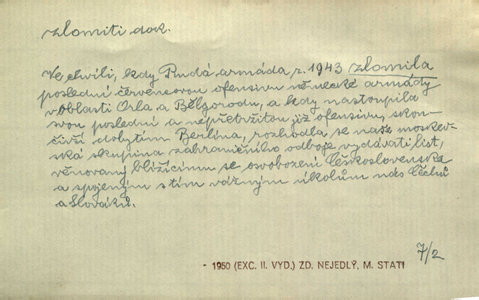 zlomiti dok.
Ve chvíli, kdy Rudá armáda r. 1943 zlomila
poslední červencovou ofensivu německé armády
v oblasti Orla a Bělgorodu, a kdy nastoupila
svou poslední a nepřetržitou již ofensivu, skon-
čivší dobytím Berlína, rozhodla se naše moskev-
ská skupina zahraničního odboje vydávati list,
věnovaný blížícímu se osvobození Československa
a spojeným s tím vážným úkolům nás Čechů
a Slováků.
7/2
- 1950 (EXC. II. VYD.) ZD. NEJEDLÝ, M. STATI